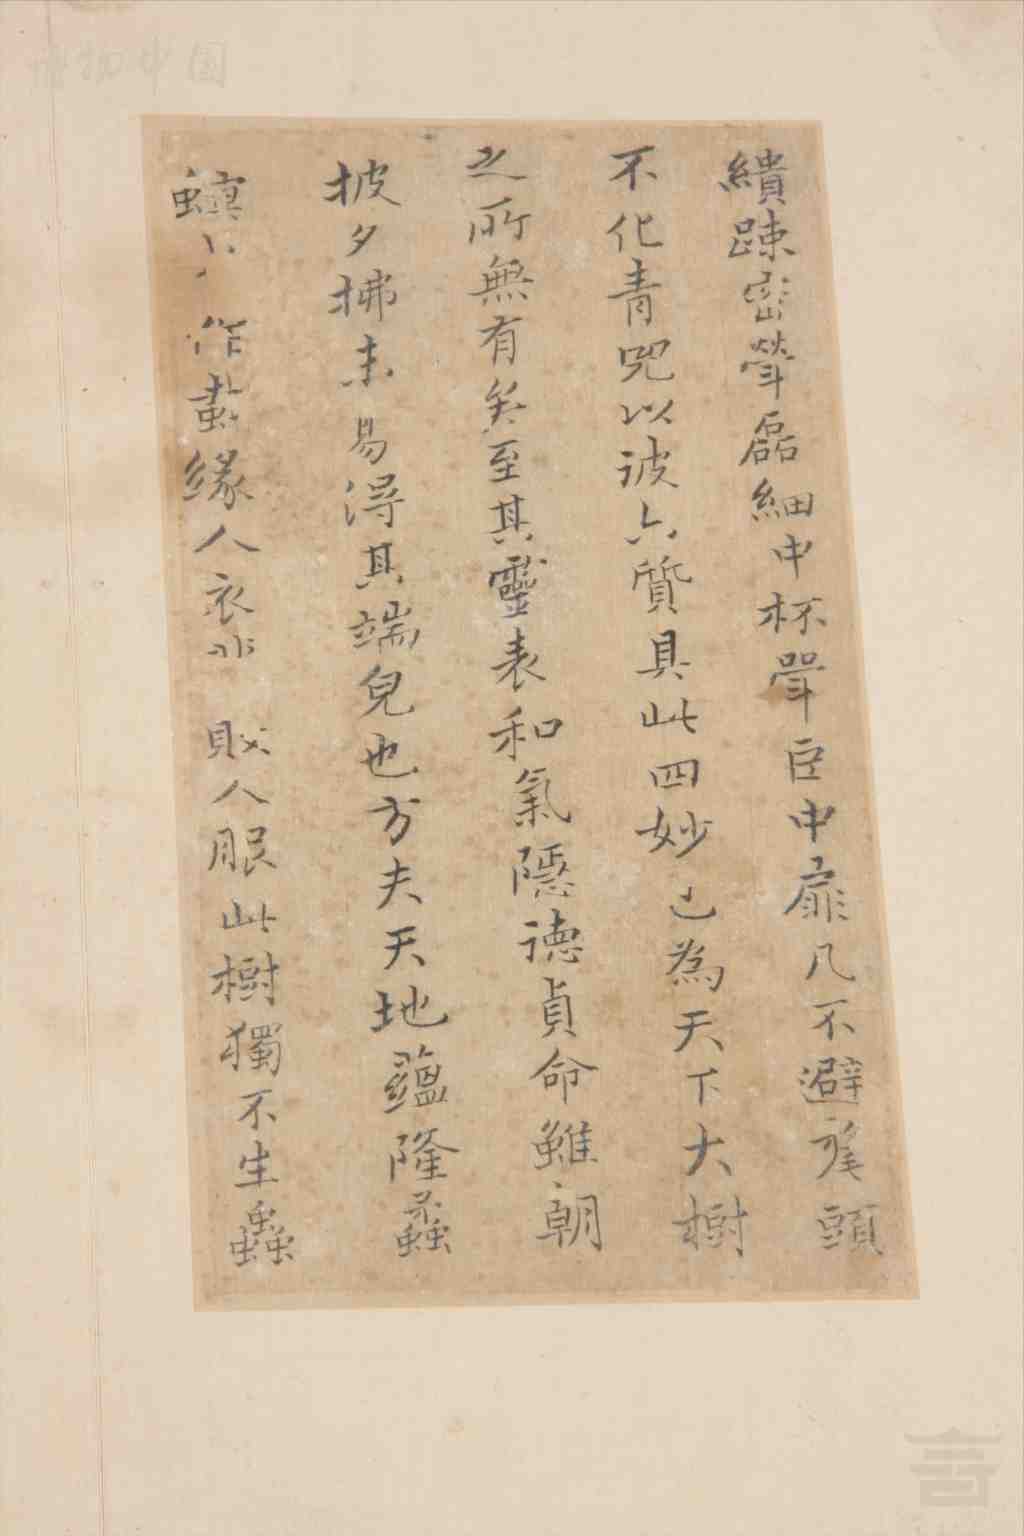 繢踈密聳磊細中杯聲臣中扉凡不避旄頭
不化青咒以彼六質具此四妙已為天下大樹
之所無有矣至其靈表和氣隱德貞命雖朝
披夕拂未易淂其端皃也方夫天地蘊隆蟲
螟 作蠹緣人衣 人眼此樹獨不生蟲
博物中国